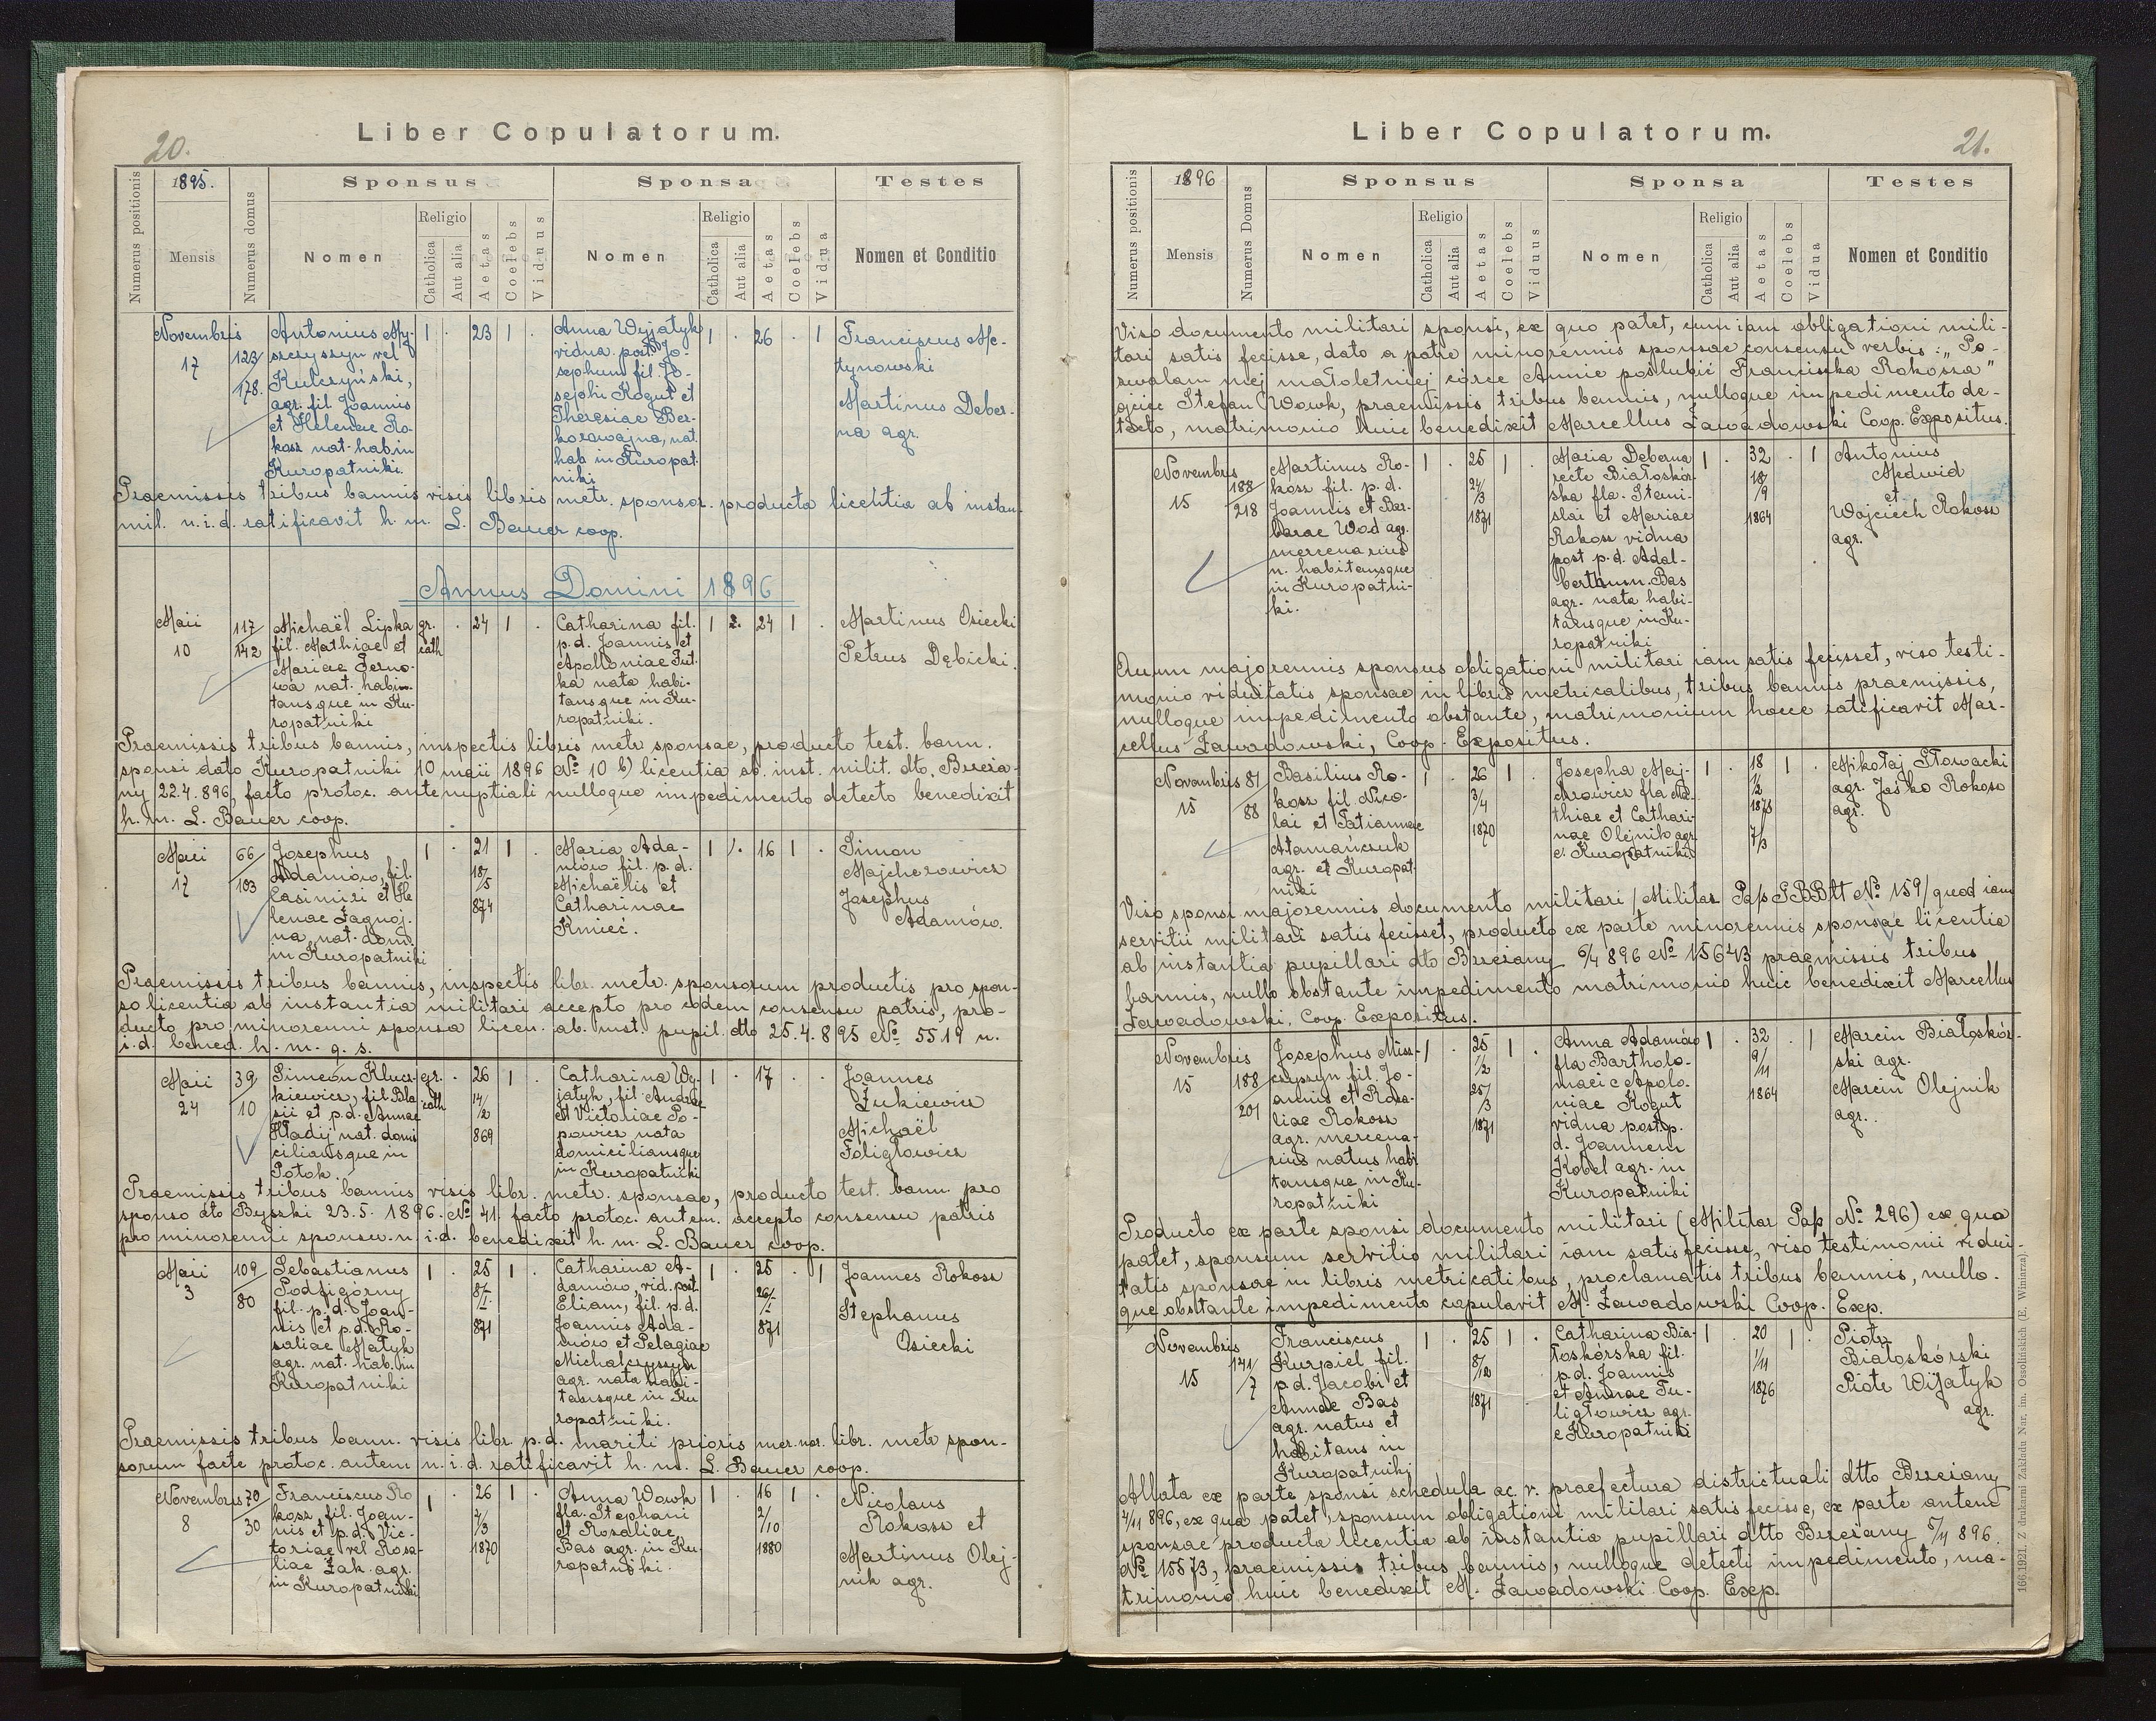 20.
Liber Copulatorum.
Numerus positionis
1895.
Mensis
Numerus domus
Sponsus
Nomen
Religio
Catholica
Aut alia
Aetas
Coelebs
Viduus
Sponsa
Nomen
Religio
Catholica
Aut alia
Aetas
Coelebs
Vidua
Testes
Nomen et Conditio
Novembris
17
123/
178.
Antonius My-
szczyszyn vel
Kulczyński,
agr. fil. Joannis
et Helenae Ro-
kosz nat. hab. in
Kuropatniki.
1 . 23 1 .
Anna Wyjatyk
vidua post Jo-
sephum fil. Jo-
sephi Kogut et
Theresiae Ber-
nat. hab in Kuropat
niki
1 . 26 . 1
Franciscus
Martinus Deber-
na agr.
Praemissis tribus bannis visis libris metr. sponsor. producta licentia ab instan.
mil. n. i. d. ratificavit h. m. L. Bauer coop.
Annus Domini 1896
Maii
10
117/
142
Michaël Lipka
fil. Mathiae et
Mariae
nat. habi-
tansque in Ku-
ropatniki
gr.
cath
. 24 1 .
Catharina fil.
p.d. Joannis et
Apolloniae
nata habi-
tansque in Ku-
ropatniki.
1 24 1 .
Martinus Osiecki
Petrus Dębicki.
Praemissis tribus bannis, inspectis libris metr sponsae, producto test. bann.
sponsi dato Kuropatniki 10 maii 1896 No 10 b) licentia ab. inst. milit. dto. Brzeża-
ny 22.4.896, facto protoc. antenuptiali nulloque impedimento detecto benedixit
h. m. L. Bauer coop.
Maii
17
66/
103
Josephus
Adamów, fil.
Casimiri et He
lenae Zagnoj.
na, nat. dom.
in Kuropatniki
1 . 21 1 .
18/5
874
Maria Ada-
mów fil. p.d.
Michaelis et
Catharinae
Kmieć.
1 . 16 1 .
Simon
Majcherowicz
Josephus
Adamów.
Praemissis tribus bannis, inspectis libr. metr. sponsorum productis pro spon-
so licentia ab instantia militari accepto pro eodem consensu patris, pro-
ducto pro minorenni sponsa licen. ab. inst. pupil. dto 25.4.895 No 5519 n.
i.d. bened. h. m. q. s.
Maii
24
39/
10
Simeon Klucz-
kiewicz, fil. Bla
sii et p.d. Annae
Hładij nat. domi
ciliansque in
Potok.
gr.
cath
. 26 1 .
14/2
869
Catharina Wy-
jatyk, fil. Andreae
et Victoriae Po-
powicz nata
domiciliansque
in Kuropatniki
1 . 17 . .
Joannes
Żukiewicz
Michaël
Foligłowicz
Praemissis tribus bannis visis libr. metr. sponsae, producto test. bann. pro
sponso dto Byszki 23.5.1896. No 41. facto protoc. anten. accepto consensu patris
pro minorenni sponsa. n. i.d. benedixit h. m. L. Bauer coop.
Maii
3
109/
80
Sebastianus
Podzigórny
fil. p.d. Joan-
nis et p.d. Ro-
saliae Matyk
agr. nat. hab. in
Kuropatniki
1 . 25 1 .
8/I.
871
Catharina A-
damów, vid. post.
Eliam, fil. p.d.
Joannis Ada-
mów et Pelagiae
Michalczyszyn
agr. nata habi-
tansque in Ku
ropatniki.
1 . 25 . 1
26/I.
871
Joannes Rokosz
Stephanus
Osiecki
Praemissis tribus bann. visis libr. p.d. mariti prioris libr. metr spon-
sorum facte protoc. anten n. i. d. ratificavit h. m. L. Bauer coop.
Novembris
8
70/
30
Franciscus Ro
kosz, fil. Joan-
nis et p.d. Vic-
toriae vel Rosa-
liae Żak. agr.
in Kuropatniki
1 . 26 1 .
4/3
1870
Anna Wowk
fla. Stephani
et Rosaliae
Bas agr. in Ku-
ropatniki.
1 . 16 1 .
2/10
1880
Nicolaus
Rokosz et
Martinus Olej-
nik agr.
21.
Liber Copulatorum.
Numerus positionis
1896
Mensis
Numerus Domus
Sponsus
Nomen
Religio
Catholica
Aut alia
Aetas
Coelebs
Viduus
Sponsa
Nomen
Religio
Catholica
Aut alia
Aetas
Coelebs
Vidua
Testes
Nomen et Conditio
Viso documento militari sponsi, ex quo patet, eum iam obligationi mili-
tari satis fecisse, dato a patre minorennis sponsae consensu verbis: „Po-
zwalam mej małoletniej córce Annie poslubić Franciszka Rokosza"
ojciec Stefan Wowk, praemissis tribus bannis, nulloque impedimento de-
tecto, matrimonio huic benedixit Marcellus Zawadowski Coop. Expositus.
Novembris
15
188/
218
Martinus Ro-
kosz fil. p.d.
Joannis et Bar-
barae Wod agr.
mercenarius
n. habitansque
in Kuropatni-
ki.
1 . 25 1 .
24/3
1871
Maria Deberna
recte Białoskór-
ska fla. Stani-
slai et Mariae
Rokosz vidua
post p.d. Adal-
bertum Bas
agr. nata habi-
tansque in Ku-
ropatniki
1 . 32 . 1
18/9
1864
Antonius
Medwid
et
Wojciech Rokosz
agr.
Quum majorennis sponsus obligationi militari iam satis fecisset, viso testi-
monio viduitatis sponsae in libris metricalibus, tribus bannis praemissis,
nulloque impedimento obstante, matrimonium hocce ratificavit Mar-
cellus Zawadowski, Coop. Expositus.
Novembris
15
81/
88
Basilius Ro-
kosz fil Nico-
lai et Tatiannae
Atamańczuk
agr. et Kuropat-
niki
1 . 26 1 .
3/4
1870
Josepha Maj-
chrowicz fla Ma-
thiae et Cathari-
nae Olejnik agr
e. Kuropatniki
1 . 18 1 .
1/2
1878
7/3
Mikołaj Słowacki
agr. Jaśko Rokosz
agr.
Viso sponsi majorennis documento militari /Militar Paß No 159/ quod iam
servitii militari satis fecisset, producto ex parte minorennis sponsae licentia
ab instantia pupillari dto Brzeżany 6/4 896 No 15643 praemissis tribus
bannis, nullo obstante impedimento matrimonio huic benedixit Marcellus
Zawadowski, Coop. Expositus.
Novembris
15
188/
201
Josephus Misz-
czyszyn fil. Jo-
annis et Rosa-
liae Rokosz
agr. mercena-
rius natus habi
tansque in Ku-
ropatniki
1 . 25 1 .
1/2
25/3
1871
Anna Adamów
fla Bartholo-
maei e Apolo-
niae Kogut
vidua post p.
d. Joannem
Kobel agr. in
Kuropatniki
1 . 32 . 1
9/11
1864
Marcin Białoskór-
ski agr.
Marcin Olejnik
agr.
Producto ex parte sponsi documento militari (Militär Paß No 296) ex qua
patet, sponsum servitio militari iam satis fecisse, viso testimonii vidui-
tatis sponsae in libris metricatibus, proclamatis tribus bannis, nullo-
que obstante impedimento copulavit M. Zawadowski Coop. Exp.
Novembris
15
141/
7
Franciscus
Kurpiel fil.
p.d. Jacobi et
Annae Bas
agr. natus et
habitans in
Kuropatniki
1 . 25 1 .
8/12
1871
Catharina Bia-
łoskórska fil.
p.d. Joannis
et Annae Tu-
ligłowicz agr.
e Kuropatniki
1 . 20 1 .
1/11
1876
Piotr
Białoskórski
Piotr Wijatyk
agr.
Allata ex parte sponsi schedula ac. r. praefectura districtuali dtto Brzeżany
4/11 896, ex qua patet, sponsum obligationi militari satis fecisse, ex parte autem
sponsae producta licentia ab instantia pupillari dtto Brzeżany 5/11 896.
No 15573, praemissis tribus bannis, nulloque detecti impedimento, ma-
trimonio huic benedixit M. Zawadowski Coop. Exp.
166.1921. Z drukarni Zakładu Nar. im. Ossolińskich (E. Winiarza)